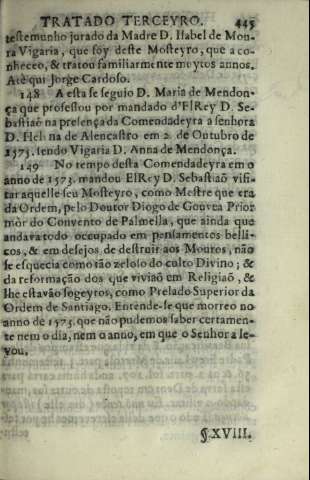 TRATADO TERCEYRO. 445
testemunho jurado da Madre D. Isabel de Mou-
ra Vigaria, que foy deste Mosteyro, que a co-
nheceo, & tratou familiarmente muytos annos.
Atèqui Jorge Cardoso.
148 A esta se seguio D. Maria de Mendon-
ça que professou por mandado d'ElRey D. Se-
bastiaõ na presença da Comendadeyra a senhora
D. Helena de Alencastro em 2. de Outubro de
1573. sendo Vigaria D. Anna de Mendonça.
149 No tempo desta Comendadeyra em o
anno de 1573. mandou ElRey D. Sebastiaõ visi-
tar aquelle seu Mosteyro, como Mestre que era
da Ordem, pelo Doutor Diogo de Gouvea Prior
mòr do Convento de Palmella, que ainda que
andava todo occupado em pensamentos belli-
cos, & em desejos de destruir aos Mouros, não
se esquecia como tão zeloso do culto Divino; &
da reformação dos que viviaõ em Religiaõ, &
lhe estavão sogeytos, como Prelado Superior da
Ordem de Santiago. Entende-se que morreo no
anno de 1575. que não pudemos saber certamen-
te nem o dia, nem o anno, em que o Senhor a le-
vou.
§.XVIII.